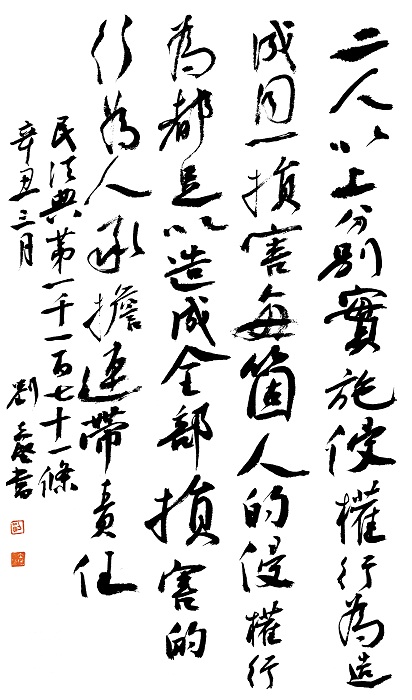 二人以上分别實施侵權行為造
成同一損害每箇人的侵權行
為都足以造成全部損害的
行為人承擔連帶責任
民法典第一千一百七十一條
辛丑三月
劉 書